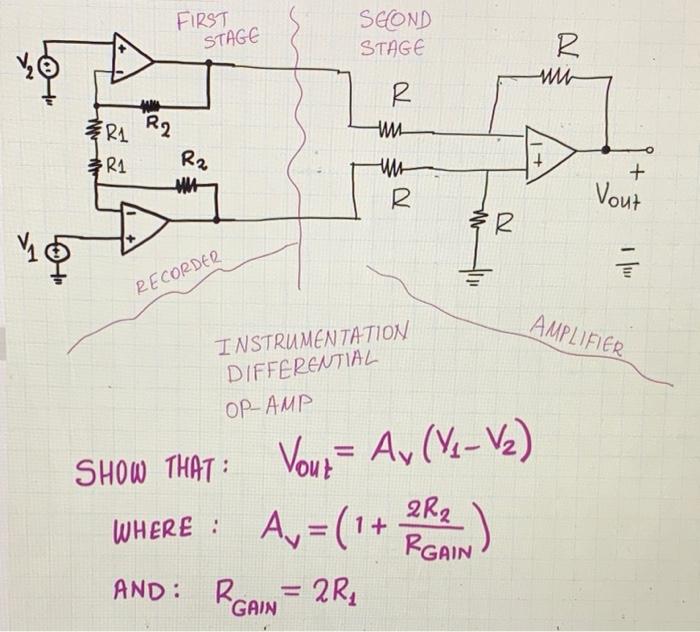 FIRST
STAGE
SECOND
STAGE
R
V2
+
-
R2
R
R1
R1
R2
-
+
+
Vout
R
R
V1
-
+
RECORDER
INSTRUMENTATION
DIFFERENTIAL
OP-AMP
AMPLIFIER
SHOW THAT: Vout = Av (V1 - V2)
WHERE : Av = (1 + 2R2 / RGAIN)
AND: RGAIN = 2R1